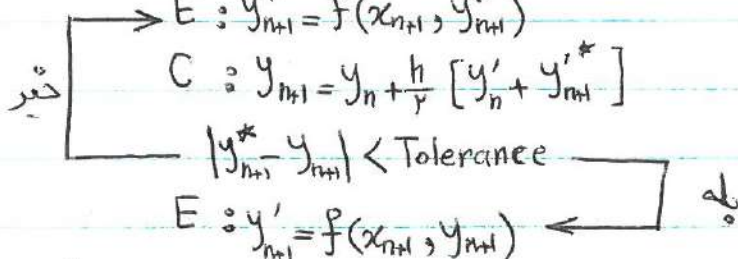 E : y'*ₙ₊₁ = f(xₙ₊₁, y*ₙ₊₁)
خیر
C : yₙ₊₁ = yₙ + h/۲ [y'ₙ + y'*ₙ₊₁]
|y*ₙ₊₁ - yₙ₊₁| < Tolerance
بله
E : y'ₙ₊₁ = f(xₙ₊₁, yₙ₊₁)